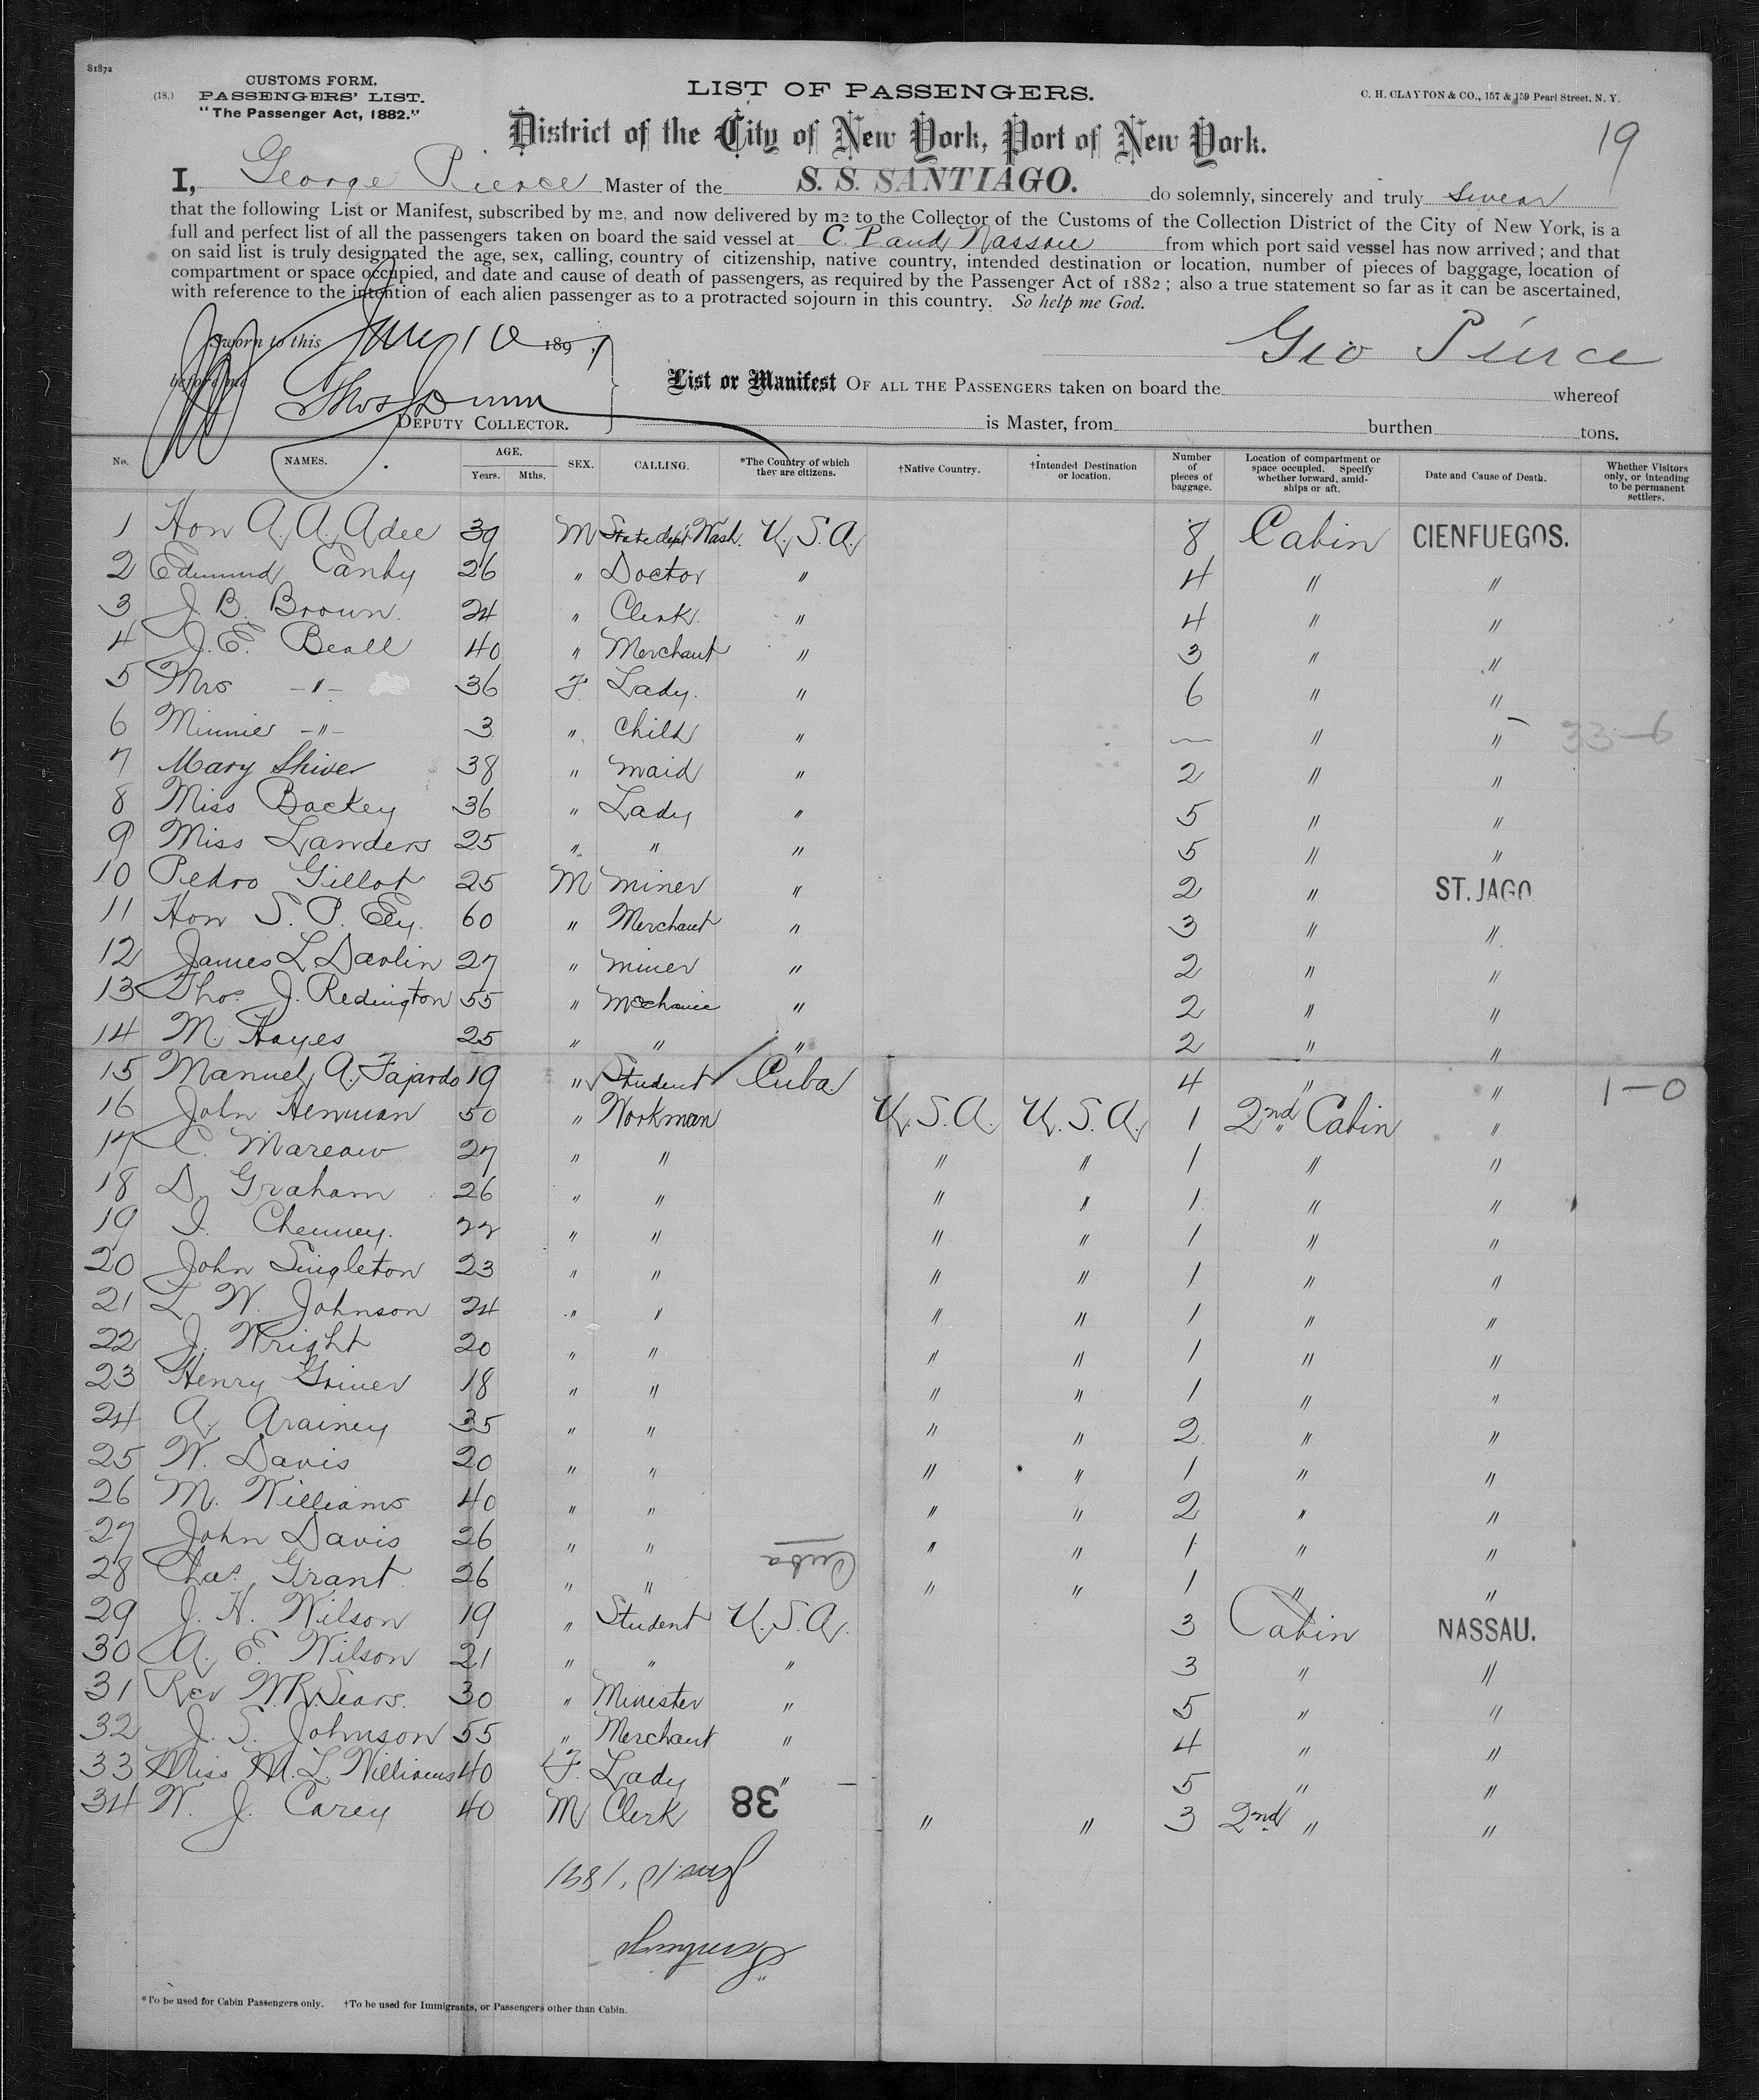 81872
CUSTOMS FORM.
(18.) PASSENGERS' LIST.
"The Passenger Act, 1882."
LIST OF PASSENGERS.
C. H. CLAYTON & CO., 157 & 159 Pearl Street, N. Y.
District of the City of New York, Port of New York.
19
I, George Pierce Master of the S. S. SANTIAGO. do solemnly, sincerely and truly swear
that the following List or Manifest, subscribed by me, and now delivered by me to the Collector of the Customs of the Collection District of the City of New York, is a
full and perfect list of all the passengers taken on board the said vessel at C. P and Nassau from which port said vessel has now arrived; and that
on said list is truly designated the age, sex, calling, country of citizenship, native country, intended destination or location, number of pieces of baggage, location of
compartment or space occupied, and date and cause of death of passengers, as required by the Passenger Act of 1882; also a true statement so far as it can be ascertained,
with reference to the intention of each alien passenger as to a protracted sojourn in this country. So help me God.
Sworn to this 10 1891
Geo Pierce
before me Thos Dunn
DEPUTY COLLECTOR.
List or Manifest OF ALL THE PASSENGERS taken on board the whereof
is Master, from burthen tons.
No. NAMES. AGE. Years. Mths. SEX. CALLING. *The Country of which they are citizens. †Native Country. †Intended Destination or location. Number of pieces of baggage. Location of compartment or space occupied. Specify whether forward, amidships or aft. Date and Cause of Death. Whether Visitors only, or intending to be permanent settlers.
1 Hon A. A. Adee 39 M State dept Wash. U. S. A. 8 Cabin CIENFUEGOS.
2 Edmund Canby 26 " Doctor " 4 " "
3 J. B. Brown. 24 " Clerk. " 4 " "
4 J. E. Beall 40 " Merchant " 3 " "
5 Mrs -"- 36 F. Lady. " 6 " "
6 Minnie -"- 3 " child " — " " 33-6
7 Mary Shiver 38 " maid " 2 " "
8 Miss Backey 36 " Lady " 5 " "
9 Miss Landers 25 " " " 5 " "
10 Pedro Gillot 25 M miner " 2 " ST. JAGO
11 Hon S. P. Ely. 60 " Merchant " 3 " "
12 James L Davlin 27 " miner " 2 " "
13 Thos. J. Redington 55 " Mechanic " 2 " "
14 M. Hayes 25 " " " 2 " "
15 Manuel A. Fajardo 19 " Student Cuba 4 " " 1-0
16 John Henman 50 " Workman U. S. A. U. S. A. 1 2nd Cabin "
17 C. 27 " " " " 1 " "
18 D. Graham 26 " " " " 1 " "
19 Chenney. 22 " " " " 1 " "
20 John Singleton 23 " " " " 1 " "
21 L. W. Johnson 24 " " " " 1 " "
22 J. Wright 20 " " " " 1 " "
23 Henry Griner 18 " " " " 1 " "
24 A. Arainey 35 " " " " 2 " "
25 W. Davis 20 " " " " 1 " "
26 M. Williams 40 " " " " 2 " "
27 John Davis 26 " " " " 1 " "
Cuba
28 Chas. Grant 26 " " " " 1 " "
29 J. H. Wilson 19 " Student U. S. A. 3 Cabin NASSAU.
30 A. E. Wilson 21 " " " 3 " "
31 Rev W R. Sears. 30 " Minister " 5 " "
32 J. S. Johnson 55 " Merchant " 4 " "
33 Miss M. L. Williams 40 F. Lady " 5 " "
34 W. J. Carey 40 M Clerk " " 3 2nd " "
38
Jan. 10, 1891
"Santiago
*To be used for Cabin Passengers only. †To be used for Immigrants, or Passengers other than Cabin.